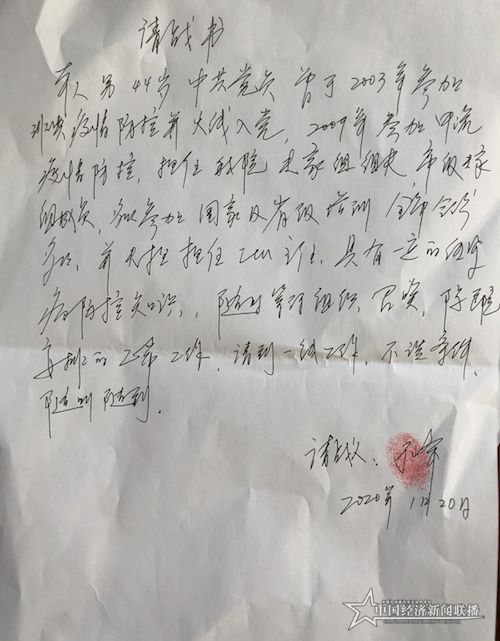 请战书
本人 男 44岁 中共党员 曾于2003年参加
疫情防控并火线入党，2009年参加甲流
疫情防控，担任我院专家组组长 市级专家
组成员，多次参加国家及省级培训
并 担任ICU主任，具有一定的传染
病防控知识，随时等待组织召唤，除
的工作，请到一线工作，不谈条件，
随叫随到。
请战人：
2020年1月20日
中国经济新闻联播